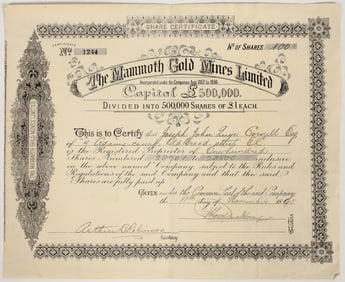 SHARE CERTIFICATE
CERTIFICATE
Nº 1244
Nº OF SHARES 100
The Mammoth Gold Mines Limited
Incorporated under the Companies Acts 1862 to 1890.
Capital £500,000.
DIVIDED INTO 500,000 SHARES OF £1 EACH
This is to Certify that Joseph John
of 4 Adams Court Old Broad Street E.C.
is the Registered Proprietor of One hundred
Shares Numbered to inclusive
in the above named Company subject to the Rules and
Regulations of the said Company and that the said
Shares are fully paid up
GIVEN under the Common Seal of the said Company
the 11th day of November 189
Directors
Arthur Robinson
Secretary
THE MAMMOTH GOLD MINES LIMITED